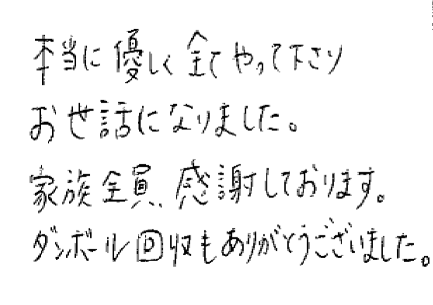 本当に優しく全てやって下さり
お世話になりました。
家族全員、感謝しております。
ダンボール回収もありがとうございました。